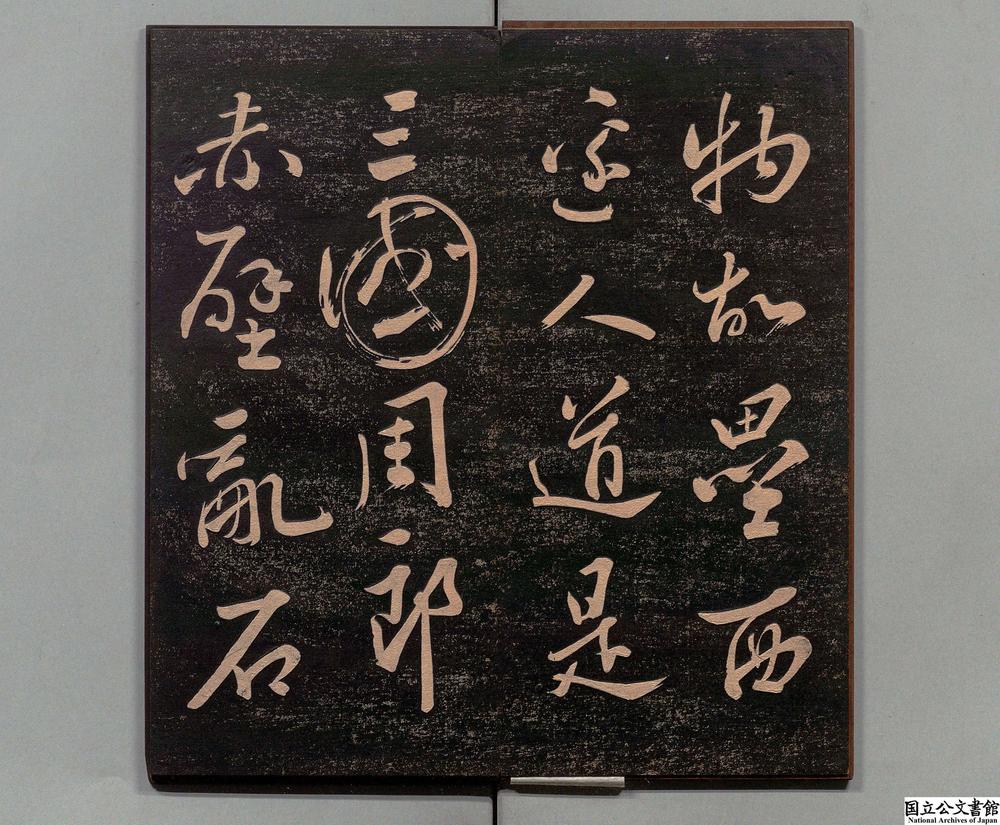 物故壘西
邊人道是
三國周郎
赤壁亂石
国立公文書館
National Archives of Japan